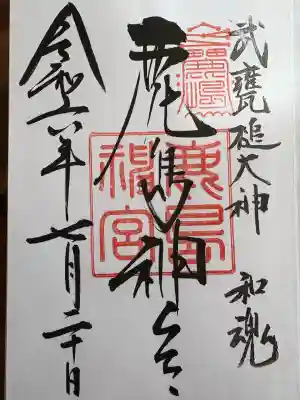 武甕槌大神 和魂
鹿嶋神宮
令和六年七月二十日
鹿島神宮